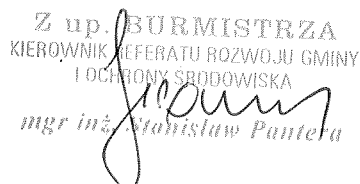 Z up. BURMISTRZA
KIEROWNIK REFERATU ROZWOJU GMINY
I OCHRONY ŚRODOWISKA
mgr inż. Stanisław Pantera